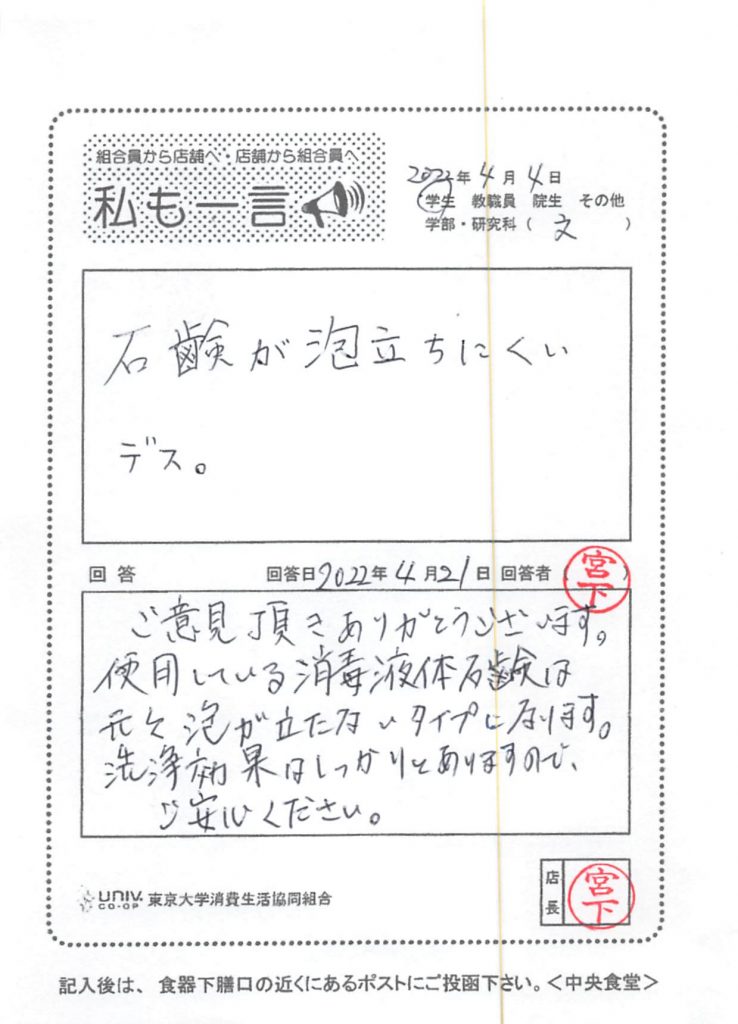 組合員から店舗へ・店舗から組合員へ
私も一言
2022年4月4日
学生 教職員 院生 その他
学部・研究科（ 文 ）
石鹸が泡立ちにくい
デス。
回答 回答日2022年4月21日 回答者（宮下）
ご意見頂きありがとうございます。
使用している消毒液体石鹸は
元々泡が立たないタイプになります。
洗浄効果はしっかりとありますので、
ご安心ください。
UNIV. CO-OP 東京大学消費生活協同組合
店長 宮下
記入後は、食器下膳口の近くにあるポストにご投函下さい。＜中央食堂＞